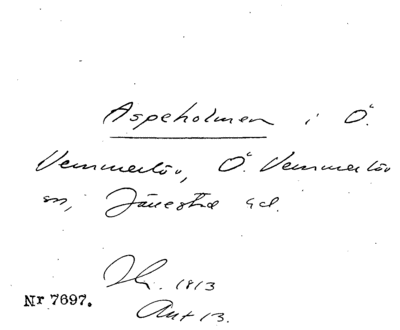 Aspeholmen i Ö.
Vemmerlöv, Ö. Vemmerlöv
sn, Järrestad hd.
1813
Nr 7697.
Akt 13.